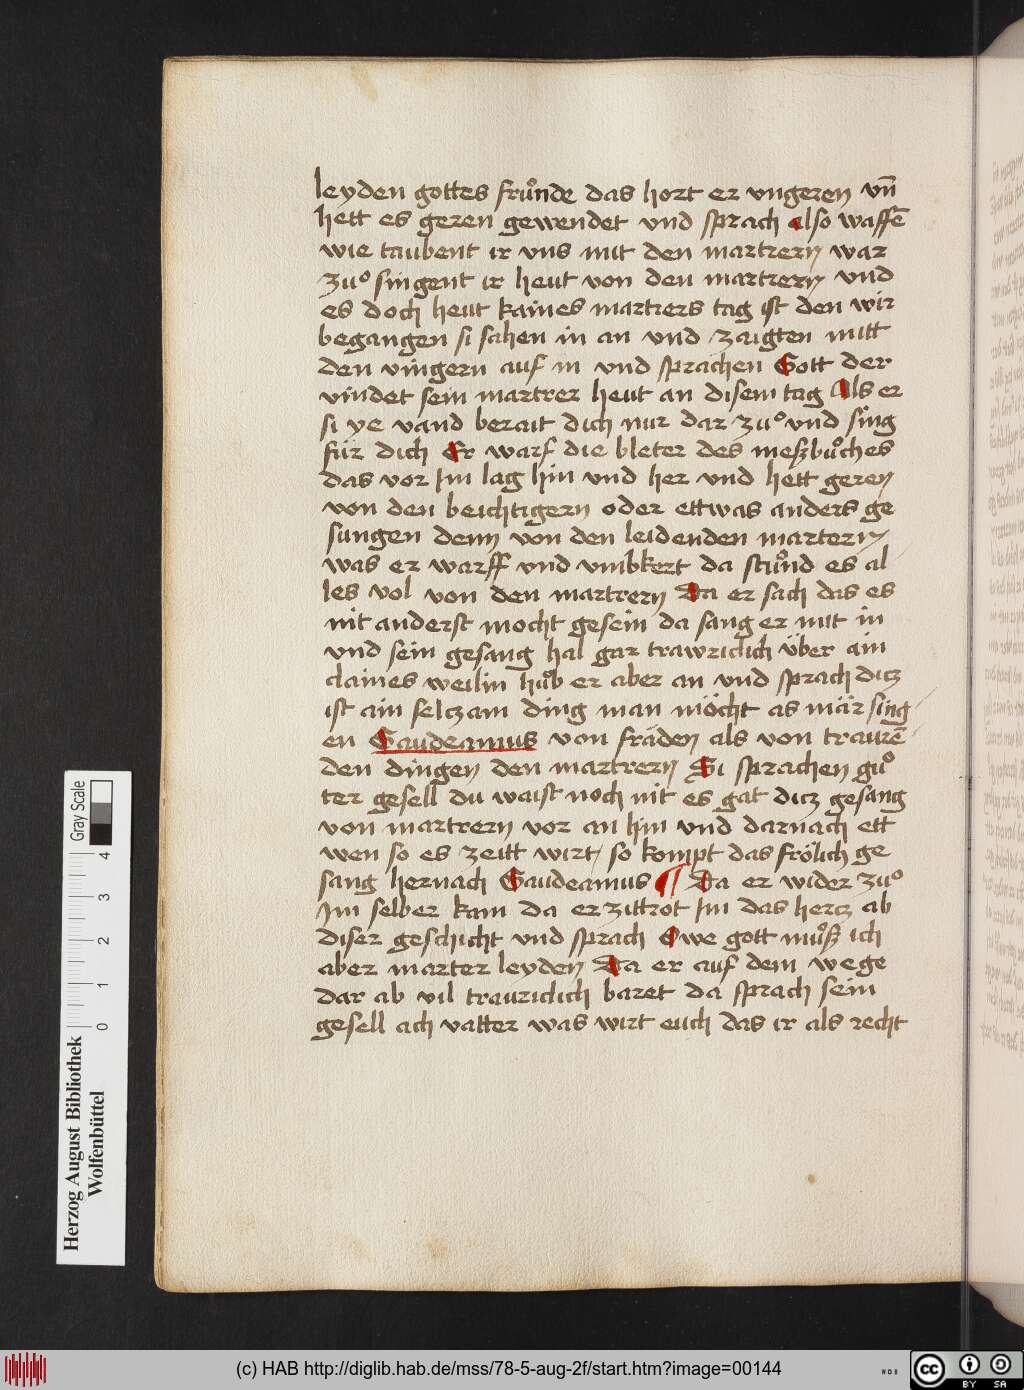 leyden gottes frůnde das hort er vngeren vn̄
hett es geren gewendet vnd sprach also waffē
wie taubent ir vns mit den martrern war
zuͦ singent ir heut von den martrern vnd
es doch heut kaines martrers tag ist den wir
begangen si sahen in an vnd zaigten mitt
den vingern auf in vnd sprächen Gott der
vindet sein martrer heut an disem tag Als er
si ye vand berait dich nur dar zuͦ vnd sing
für dich Er warf die bleter des meßbůches
das vor Im lag hin vnd her vnd hett geren
von den beichtigern oder ettwas anders ge
sungen denn von den leidenden martern
was er warff vnd vmbkert da stůnd es al
les vol von den martrern Da er sach das es
nit anderst mocht gesein da sang er mit in
vnd sein gesang hal gar trawriclich über ain
claines weilin hůb er aber an vnd sprach dicz
ist ain selczam ding man möcht as mär sing
en Gaudeamus von fräden als von traurē
den dingen den martrern Si sprachen guͦ
ter gesell du waist noch nit es gat dicz gesang
von martrern vor an hin vnd darnach ett
wen so es zeitt wirt / so kompt das frölich ge
sang hernach Gaudeamus ¶ Da er wider zuͦ
Im selber kam da erzittrot Im das hercz ab
diser geschicht vnd sprach Owe gott můß ich
aber marter leyden Da er auf dem wege
dar ab vil trauriclich baret da sprach sein
gesell ach vatter was wirt euch das ir als recht
Herzog August Bibliothek
Wolfenbüttel
Gray Scale
0 1 2 3 4
(c) HAB http://diglib.hab.de/mss/78-5-aug-2f/start.htm?image=00144
WDB
cc BY SA